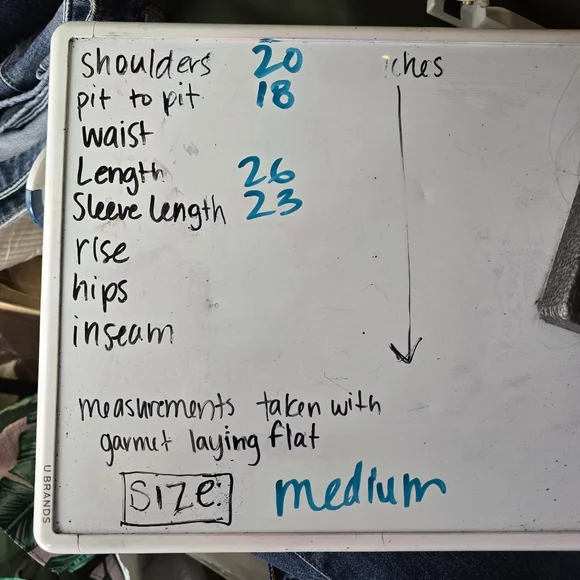 shoulders 20 ches
pit to pit 18
waist
Length 26
Sleeve length 23
rise
hips
inseam
measurements taken with
garmet laying flat
size: medium
U BRANDS